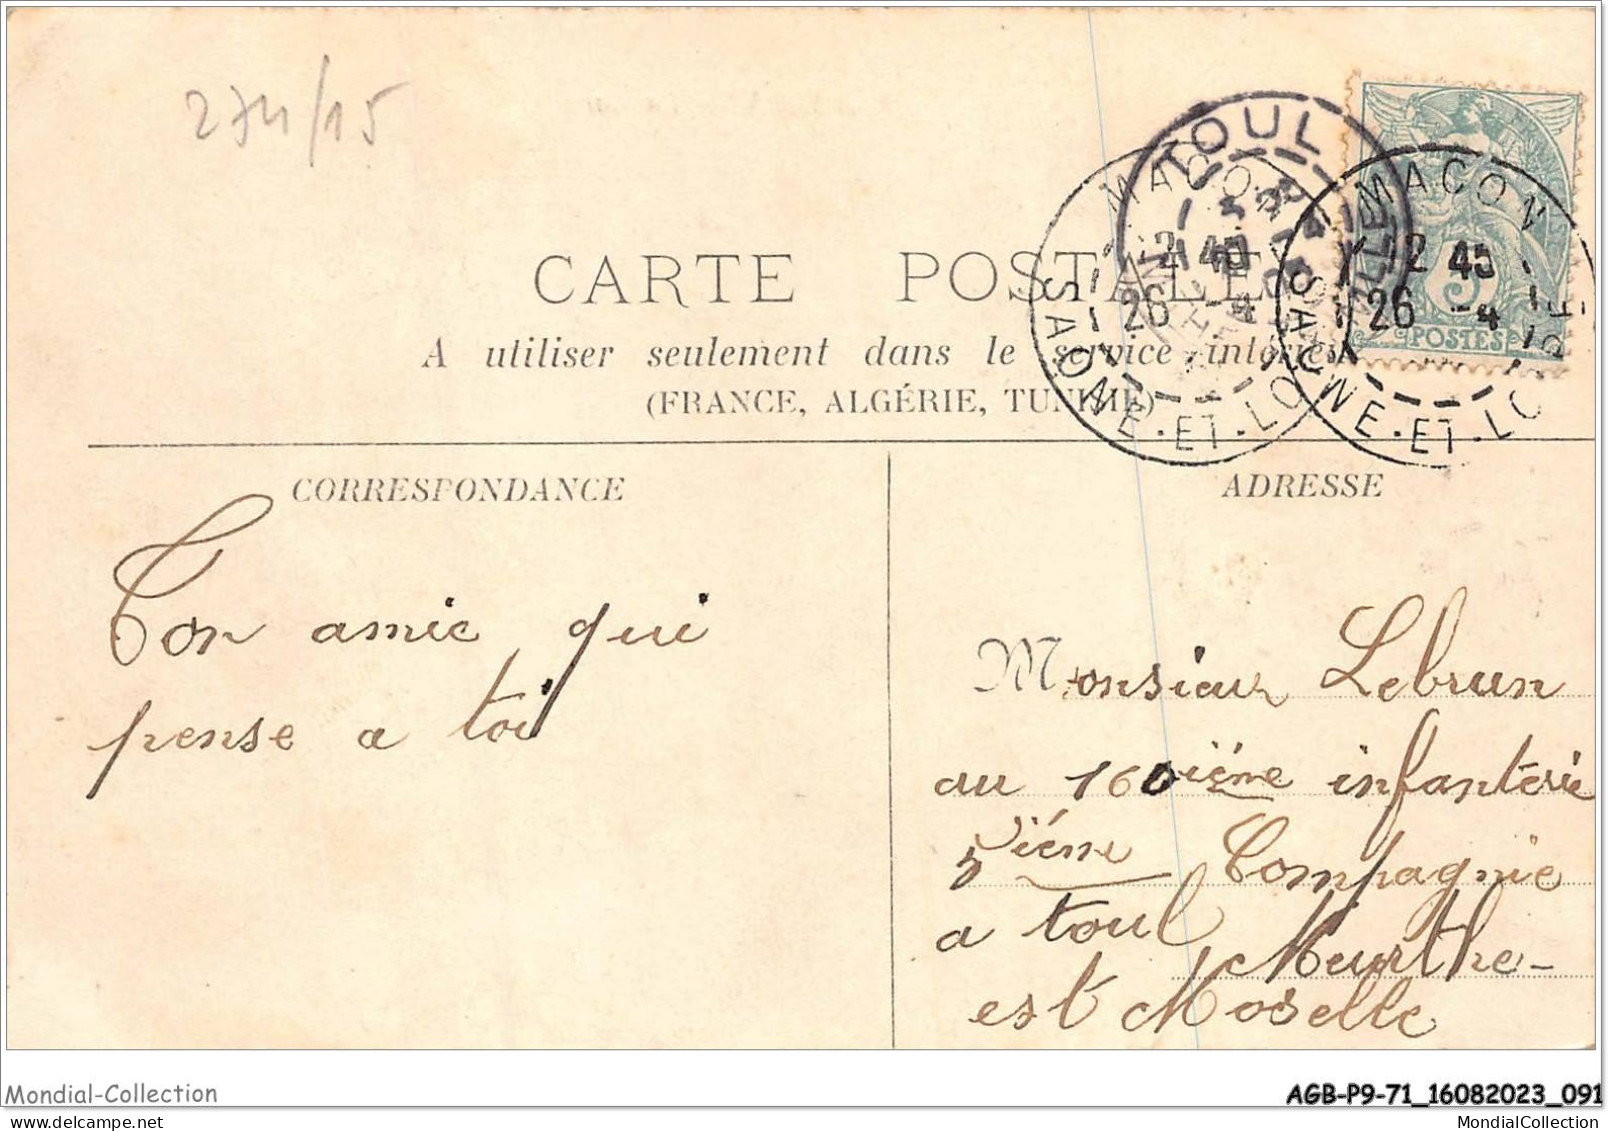 274/15
CARTE POSTALE
A utiliser seulement dans le service intérieur
(FRANCE, ALGÉRIE, TUNISIE)
TOUL
MACON
2 45
26 -4
SAONE-ET-LOIRE
MACON
12 45
26 -4
SAONE-ET-LOIRE
5
POSTES
CORRESPONDANCE
ADRESSE
Ton amie qui
pense a toi
Monsieur Lebrun
au 160ième infanterie
5ième Compagnie
a toul Meurthe-
est Moselle
Mondial-Collection
AGB-P9-71_16082023_091
MondialCollection